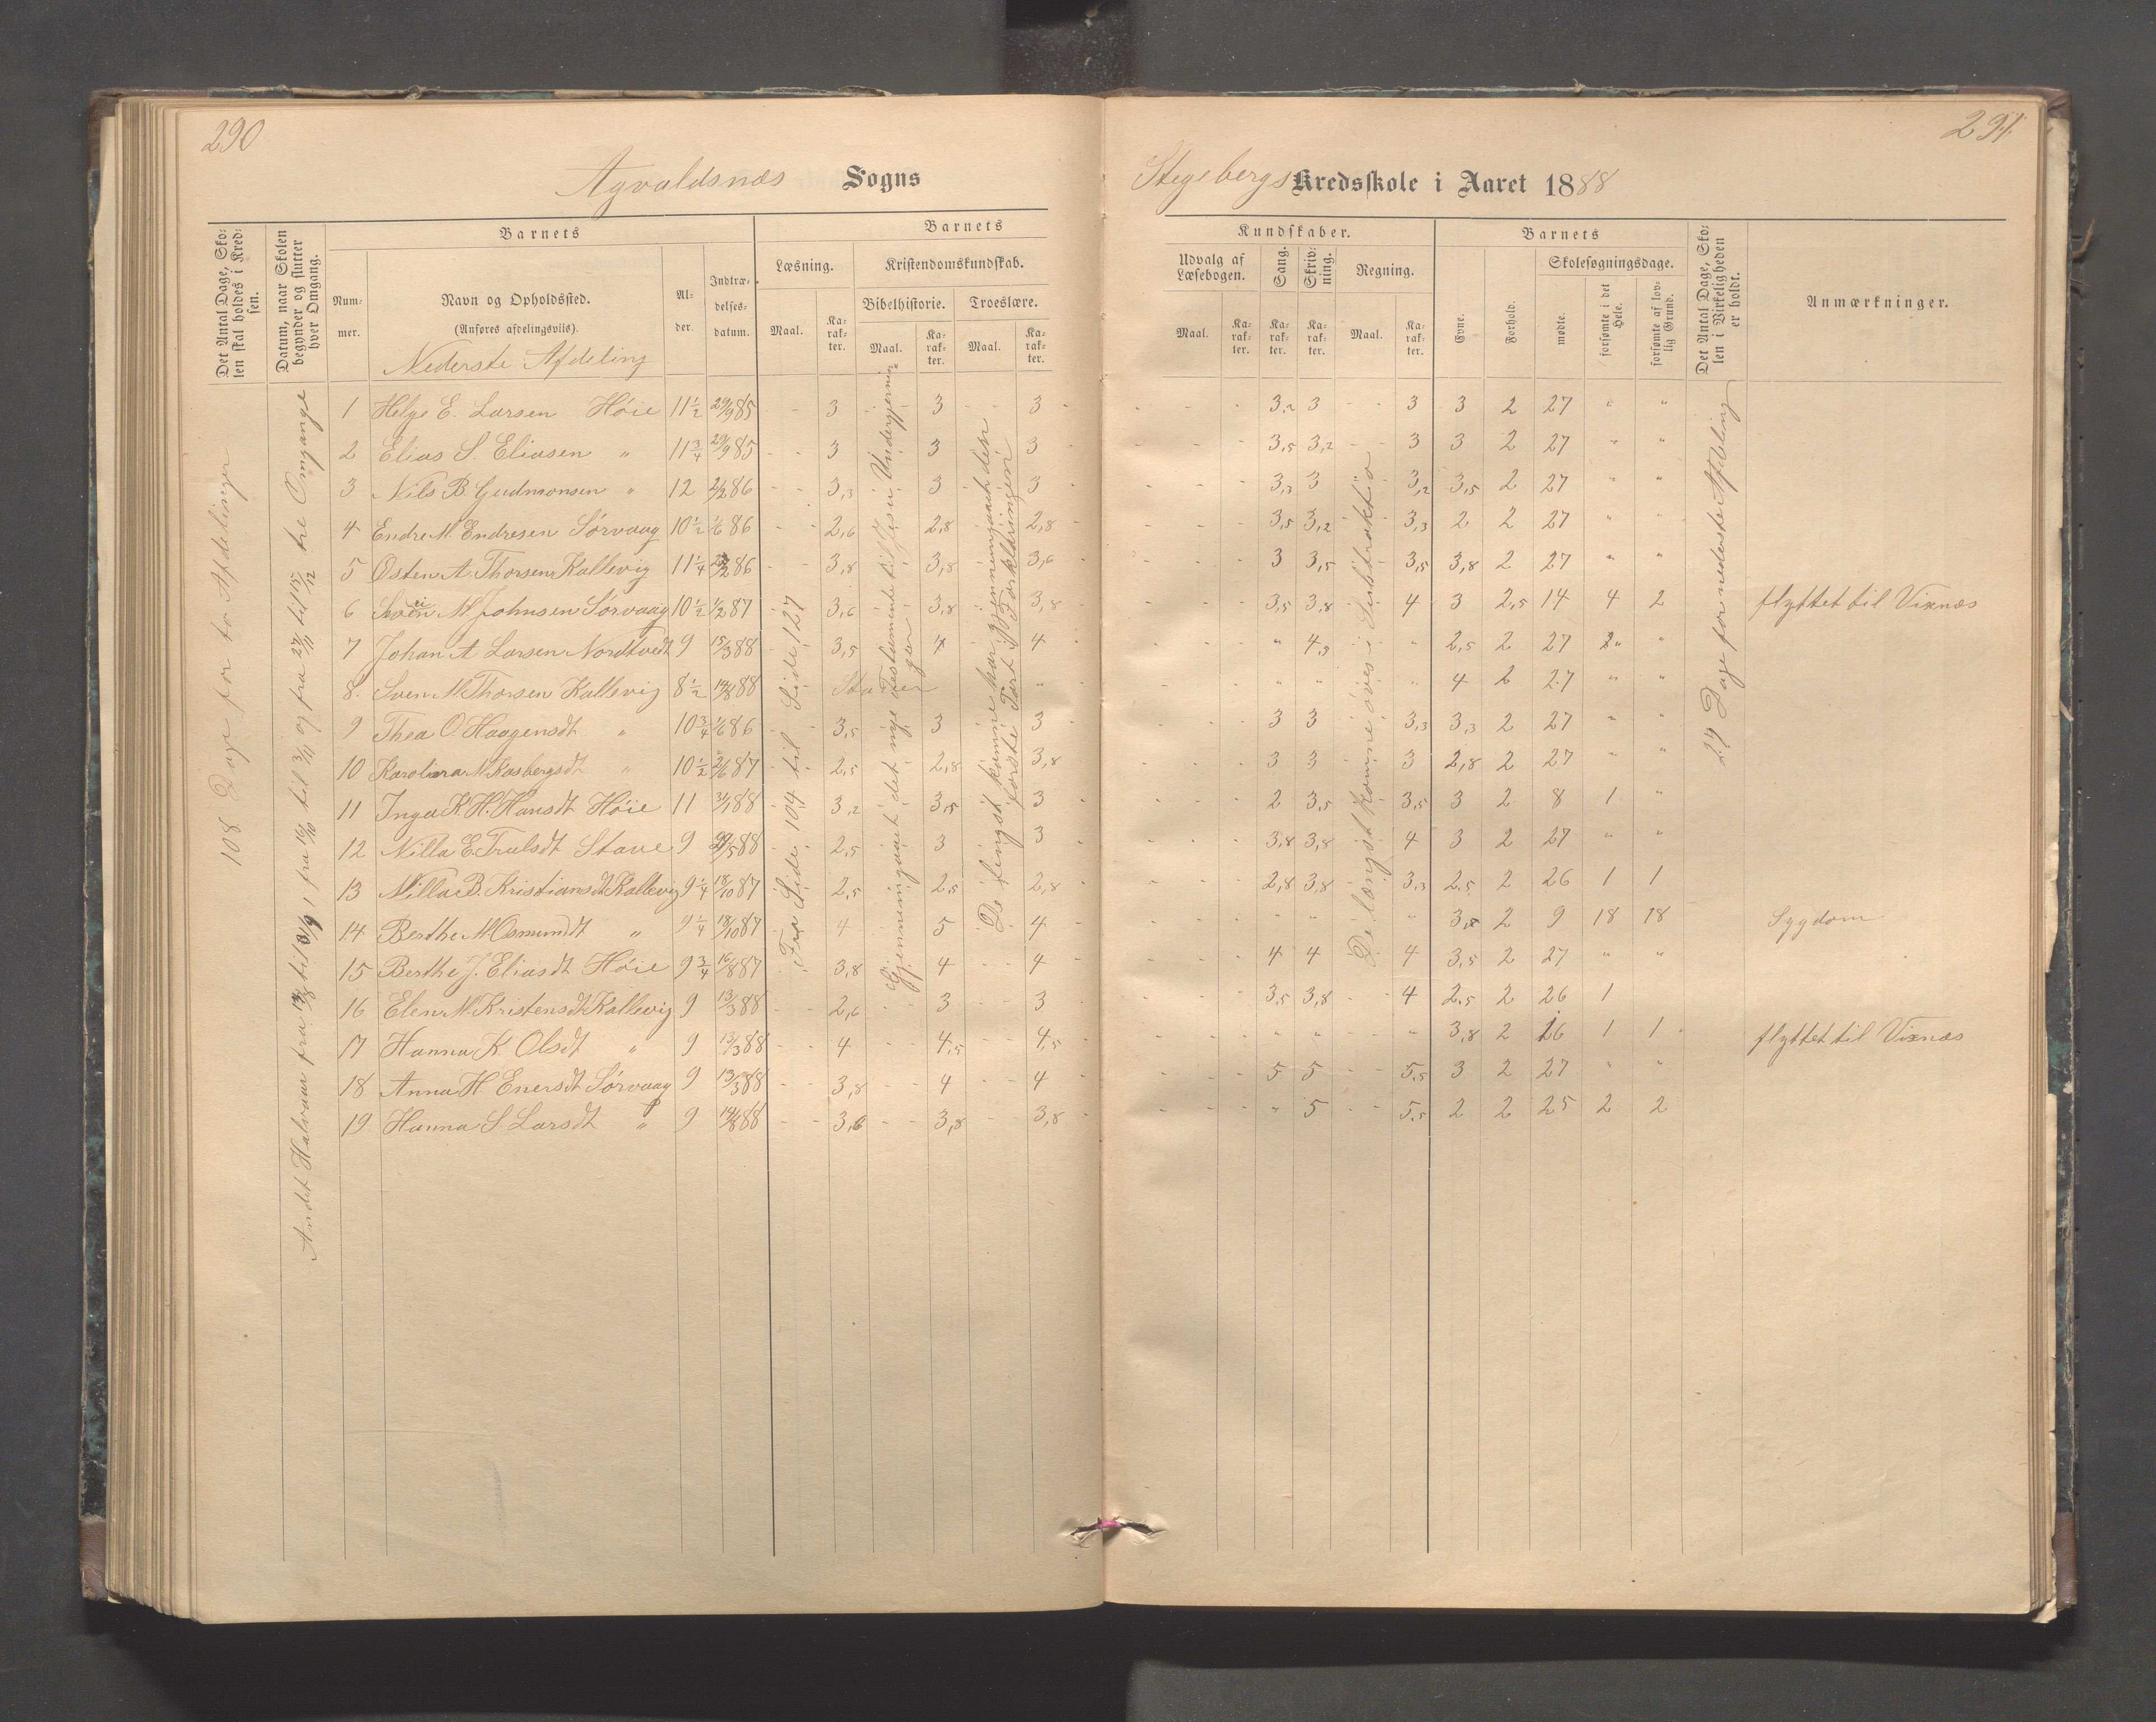 290
291.
Agvaldsnæs Sogns
Stegebergs Kredsskole i Aaret 1888
Det Antal Dage, Skolen skal holdes i Kredsen.
Datum, naar Skolen begynder og slutter hver Omgang.
Barnets
Nummer.
Navn og Opholdssted.
(Anføres afdelingsviis).
Nederste Afdeling
Alder.
Indtrædelsesdatum.
Barnets
Læsning.
Maal.
Karakter.
Kristendomskundskab.
Bibelhistorie.
Maal.
Karakter.
Troeslære.
Maal.
Karakter.
Kundskaber.
Udvalg af Læsebogen.
Maal.
Karakter.
Sang.
Karakter.
Skrivning.
Karakter.
Regning.
Maal.
Karakter.
Barnets
Evne.
Forhold.
Skolesøgningsdage.
mødte.
forsømte i det Hele.
forsømte af lovlig Grund.
Det Antal Dage, Skolen i Virkeligheden er holdt.
Anmærkninger.
108 Dage for to Afdelinger
Andet Halvaar
til 3/11 og fra 27/11 til 15/12 tre Omgange
Fra Side 104 til Side 127
Gjennemgaaet det nye Testamente til Jesu Undergjerninger
De længst komne har gjennemgaaet den første Part i Forklaringen
De længst komne øves i Subtraktion
27 Dage for nederste Afdeling
1 Helge E. Larsen Høie 11 1/2 29/9 85 3 3 3 3,2 3 3 3 2 27 " "
2 Elias S. Eliasen " 11 3/4 29/9 85 3 3 3 3,5 3,2 3 3 2 27 " "
3 Nils B. Gudmonsen " 12 2/2 86 3,3 3 3 3,3 3 3,2 3,5 2 27 " "
4 Endre M. Endresen Sørvaag 10 1/2 1/6 86 2,6 2,8 2,8 3,5 3,2 3,3 2 2 27 " "
5 Østen A. Thorsen Kallevig 11 1/4 86 3,8 3,8 3,6 3 3,5 3,5 3,8 2 27 " "
6 Svein M. Johnsen Sørvaag 10 1/2 1/2 87 3,6 3,8 3,8 3,5 3,8 4 3 2,5 14 4 2 flyttet til Vixnæs
7 Johan A. Larsen Nordtvedt 9 15/3 88 3,5 4 4 " 4,5 " 2,5 2 27 " "
8. Sven M. Thorsen Kallevig 8 1/2 14/8 88 Staver " " " " 4 2 27 " "
9 Thea O. Haagensdt " 10 3/4 1/6 86 3,5 3 3 3 3 3,3 3,3 2 27 " "
10 Karolina N. Kosbergsdt " 10 1/2 2/6 87 2,5 2,8 3,8 3 3 3 2,8 2 27 " "
11 Inga K. H. Hansdt Høie 11 3/1 88 3,2 3,5 3 2 3,5 3,5 3 2 8 1 "
12 Nilla E. Trulsdt Stave 9 29/5 88 2,5 3 3 3,8 3,8 4 3 2 27 " "
13 Nilla B. Kristiansdt Kallevig 9 1/4 18/10 87 2,5 2,5 2,8 2,8 3,8 3,3 2,5 2 26 1 1
14 Berthe M. Osmundt " 9 1/4 18/10 87 4 5 4 " " " 3,8 2 9 18 18 Sygdom
15 Berthe J. Eliasdt Høie 9 3/4 16/8 87 3,8 4 4 4 4 4 3,5 2 27 " "
16 Elen M. Kristensdt Kallevig 9 13/3 88 2,6 3 3 3,5 3,8 4 2,5 2 26 1
17 Hanna K. Olsdt " 9 13/3 88 4 4,5 4,5 " " " 3,8 2 16 1 1 flyttet til Vixnæs
18 Anna H. Enersdt Sørvaag 9 13/3 88 3,8 4 4 5 5 5,5 3 2 27 " "
19 Hanna S. Larsdt " 9 14/8 88 3,6 3,8 3,8 " 5 5,5 2 2 25 2 2